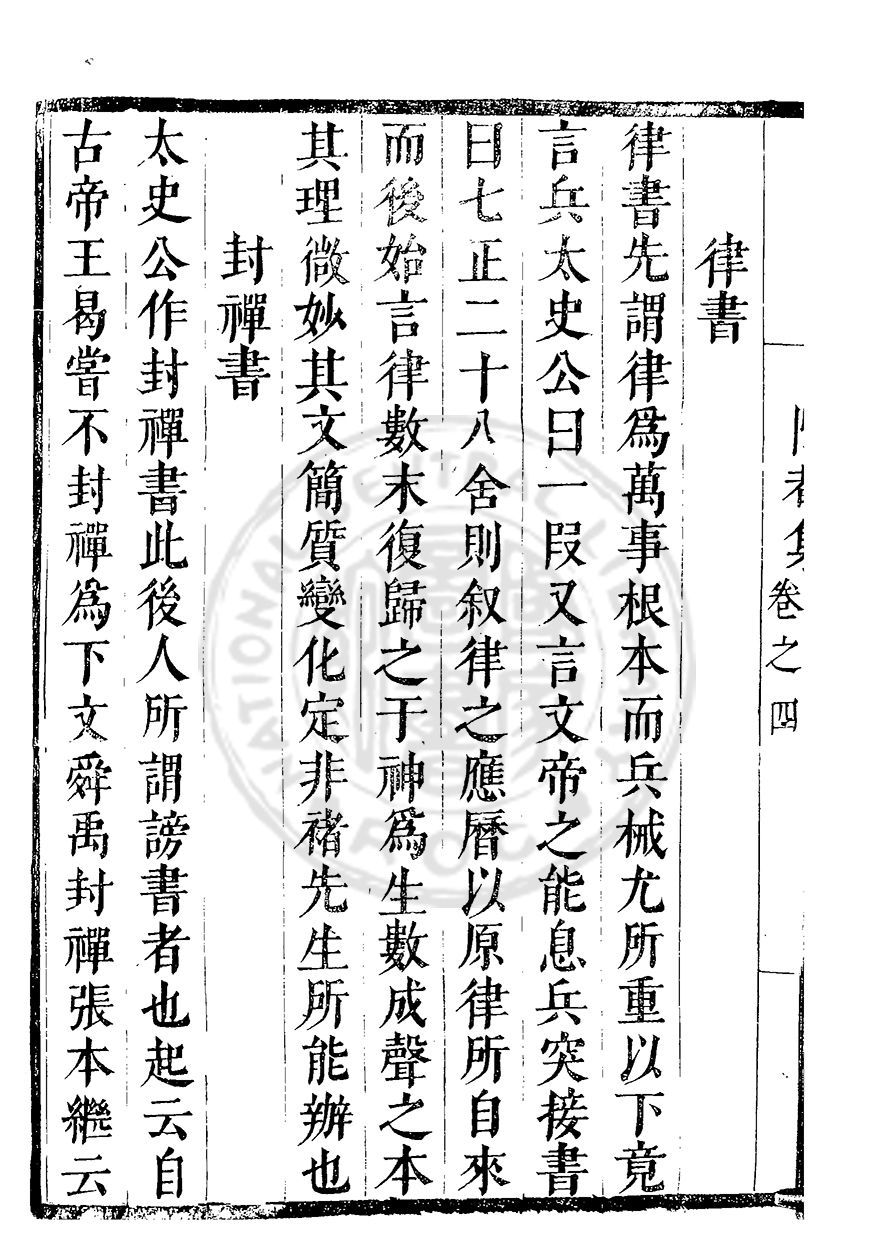 律書
律書先謂律爲萬事根本而兵械尤所重以下竟
言兵太史公曰一段又言文帝之能息兵突接書
曰七正二十八舍則叙律之應曆以原律所自來
而後始言律數末復歸之于神爲生數成聲之本
其理微妙其文簡質變化定非褚先生所能辦也
封禪書
太史公作封禪書此後人所謂謗書者也起云自
古帝王曷嘗不封禪爲下文舜禹封禪張本繼云
集卷之四
NATIONAL CENTRAL LIBRARY